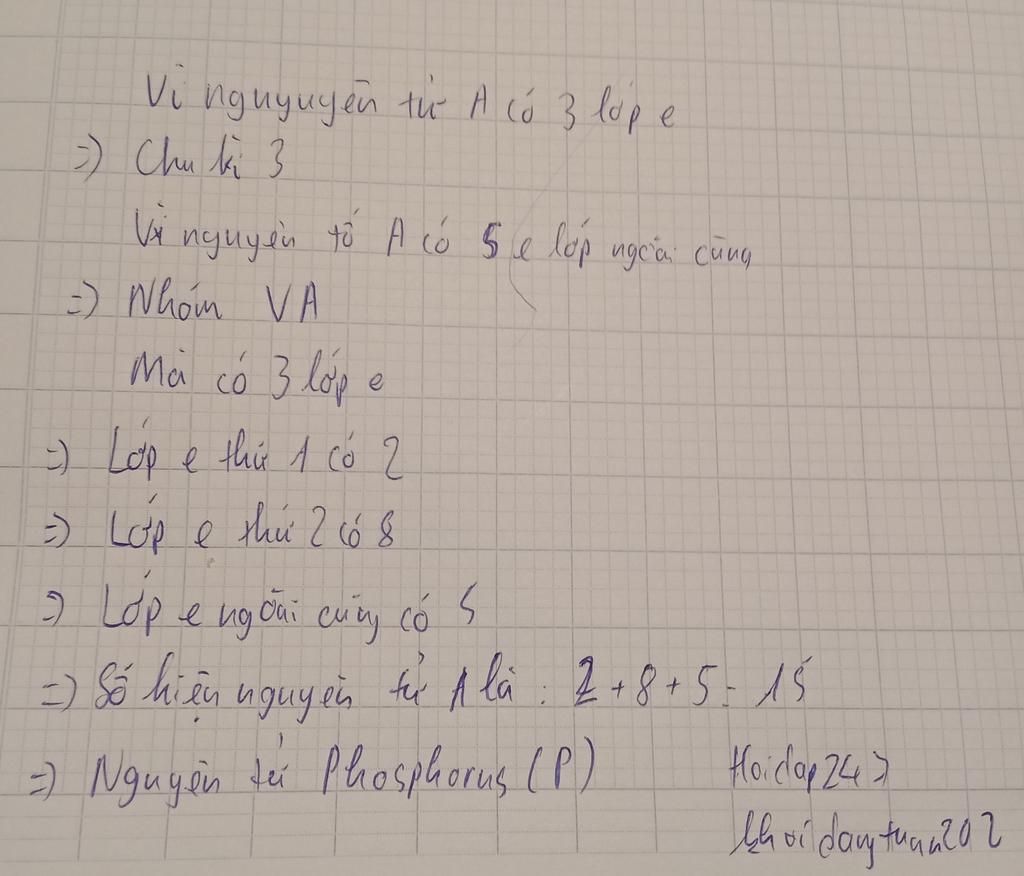 Vì nguyuyên tử A có 3 lớp e
=) Chu kì 3
Vì nguyên tố A có 5 e lớp ngoài cùng
=) Nhóm VA
Mà có 3 lớp e
=) Lớp e thứ 1 có 2
=) Lớp e thứ 2 có 8
=) Lớp e ngoài cùng có 5
=) Số hiệu nguyên tử A là : 2 + 8 + 5 = 15
=) Nguyên tử Phosphorus (P)
Hoidap247
khoidangtuan202